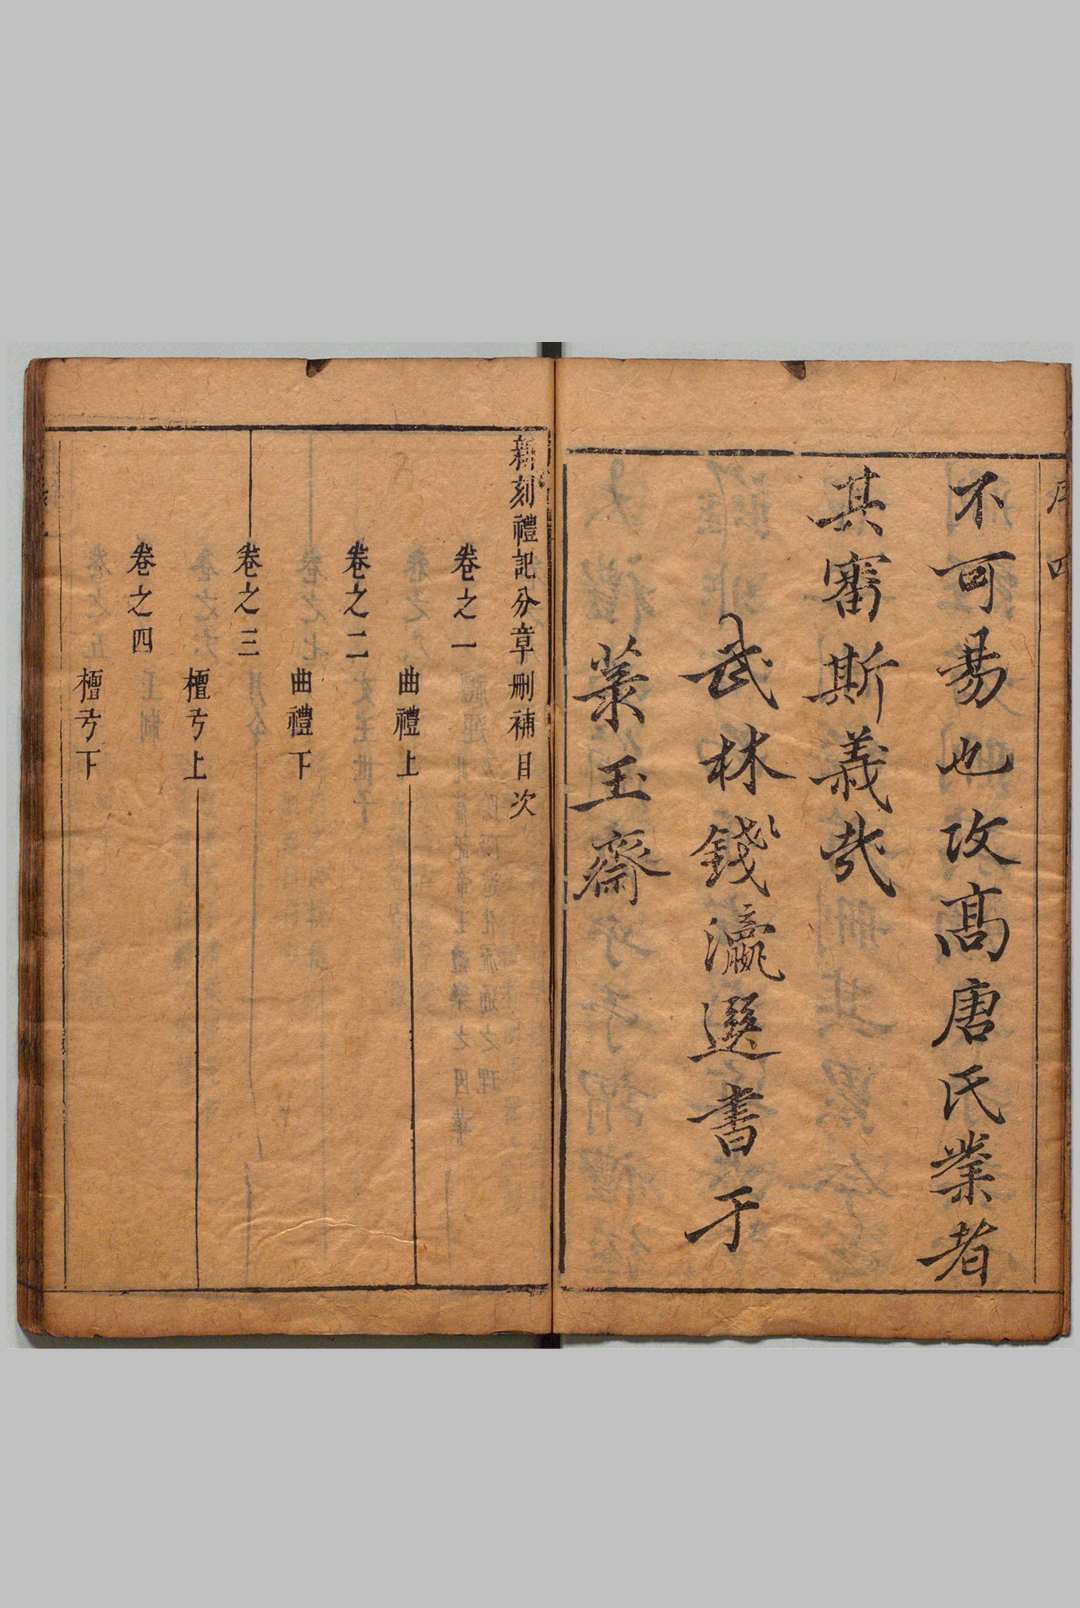 不可易也攻髙唐氏業者
其審斯義哉
武林錢瀛選書于
叢玉齋
新刻禮記分章刪補目次
卷之一
曲禮上
卷之二
曲禮下
卷之三
檀弓上
卷之四
檀弓下